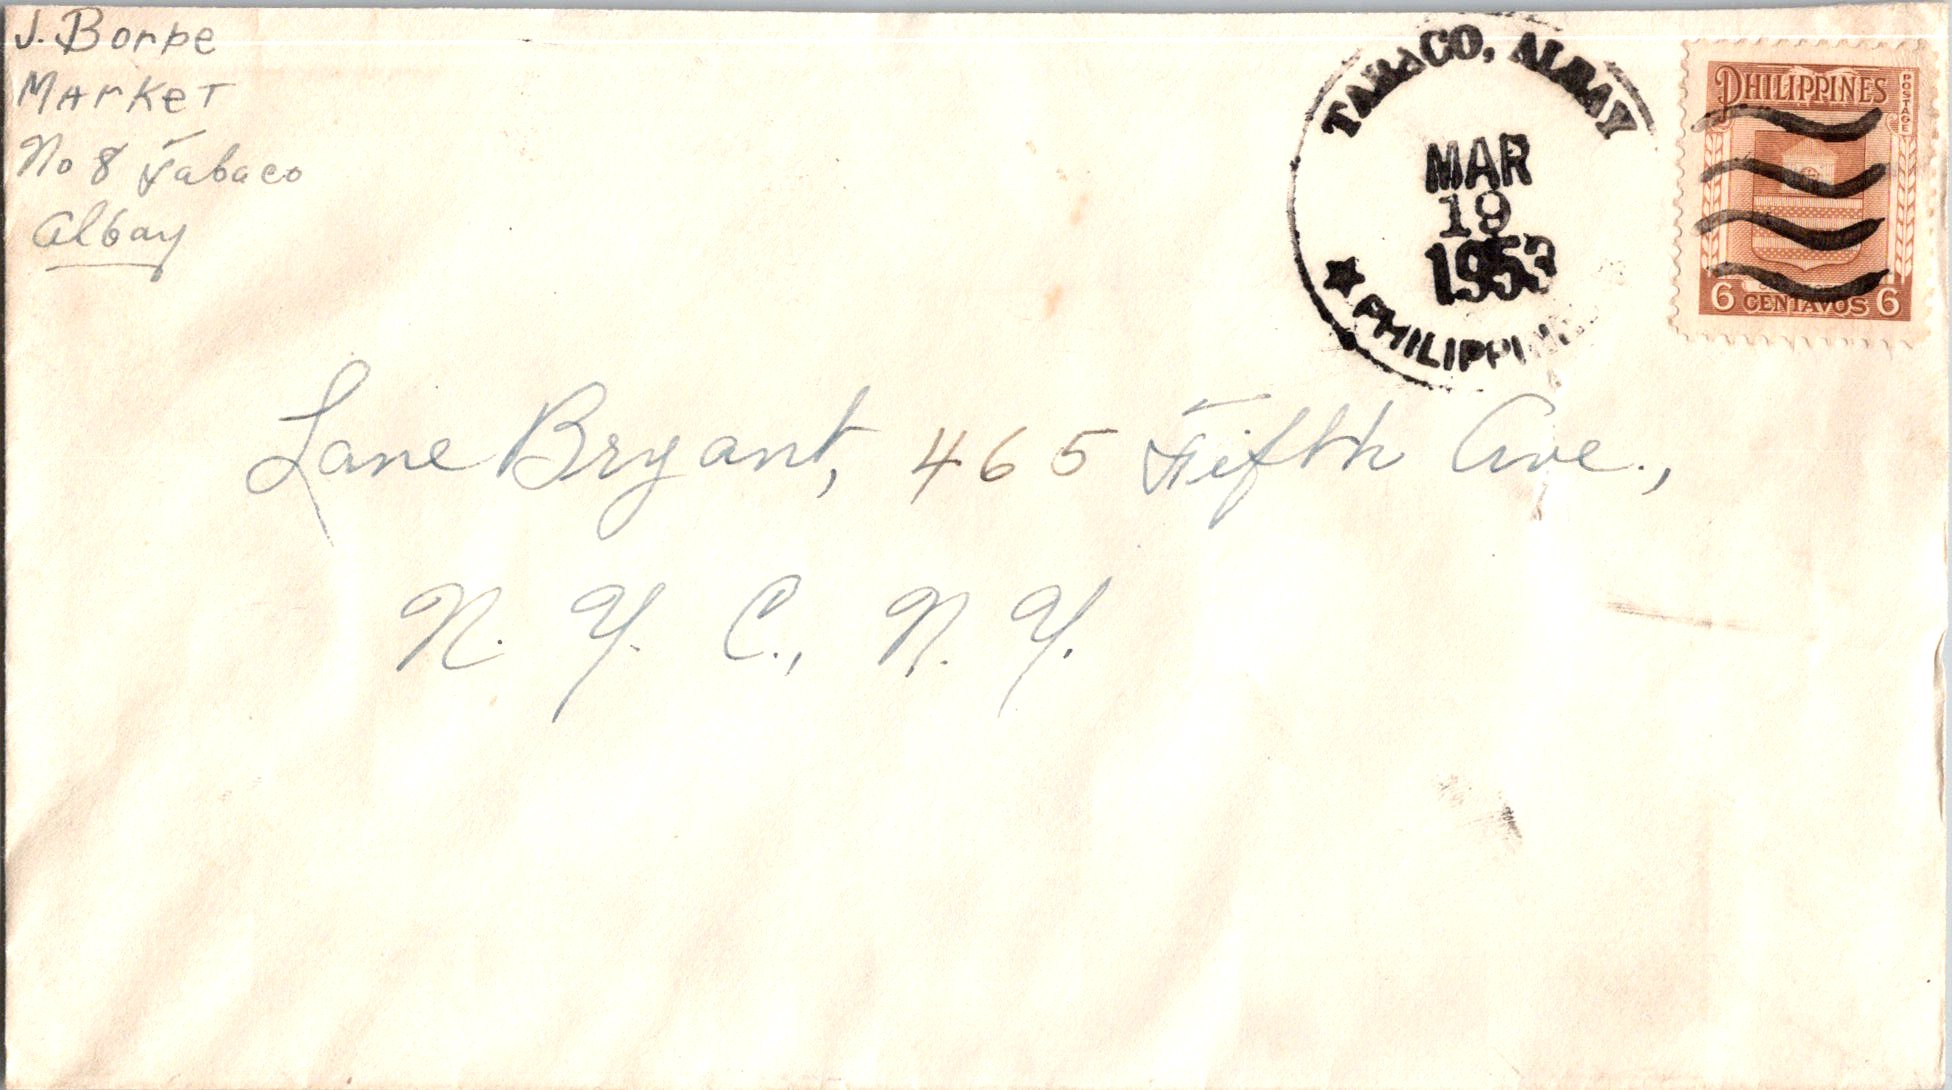 J. Borbe
Market
No 8 Tabaco
Albay
TABACO, ALBAY
MAR
19
1953
PHILIPPINES
PHILIPPINES
POSTAGE
6 CENTAVOS 6
Lane Bryant, 465 Fifth Ave.,
N. Y. C., N. Y.